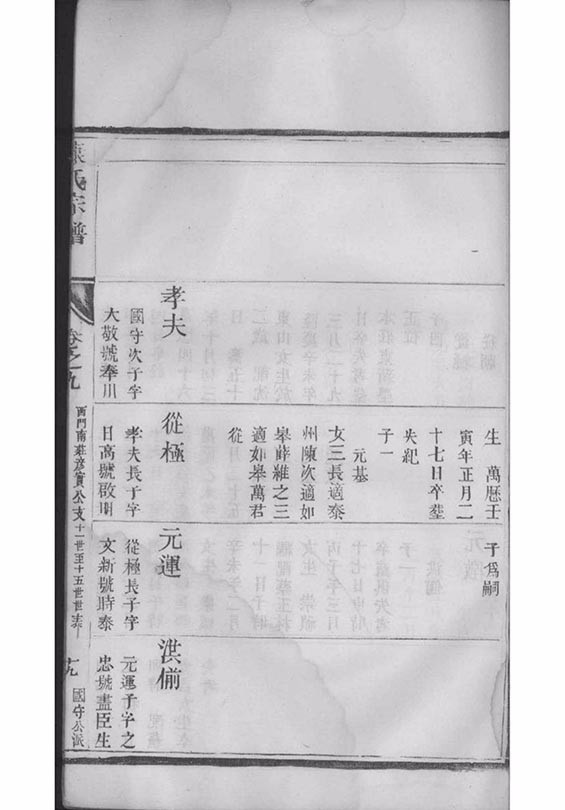 孝夫
國守次子字
大敬號奉川
生 萬曆壬
寅年正月二
十七日卒塟
失紀
子一
元基
女三長適泰
州陳次適如
皋薛維之三
適如皋萬君
從
從極
孝夫長子字
日高號啟明
子為嗣
元運
從極長子字
文新號時泰
洪偂
元運子字之
忠號盡臣生
氏宗譜
卷之九
西門南莊彦實公支十一世至十五世世表
十九
國守公派